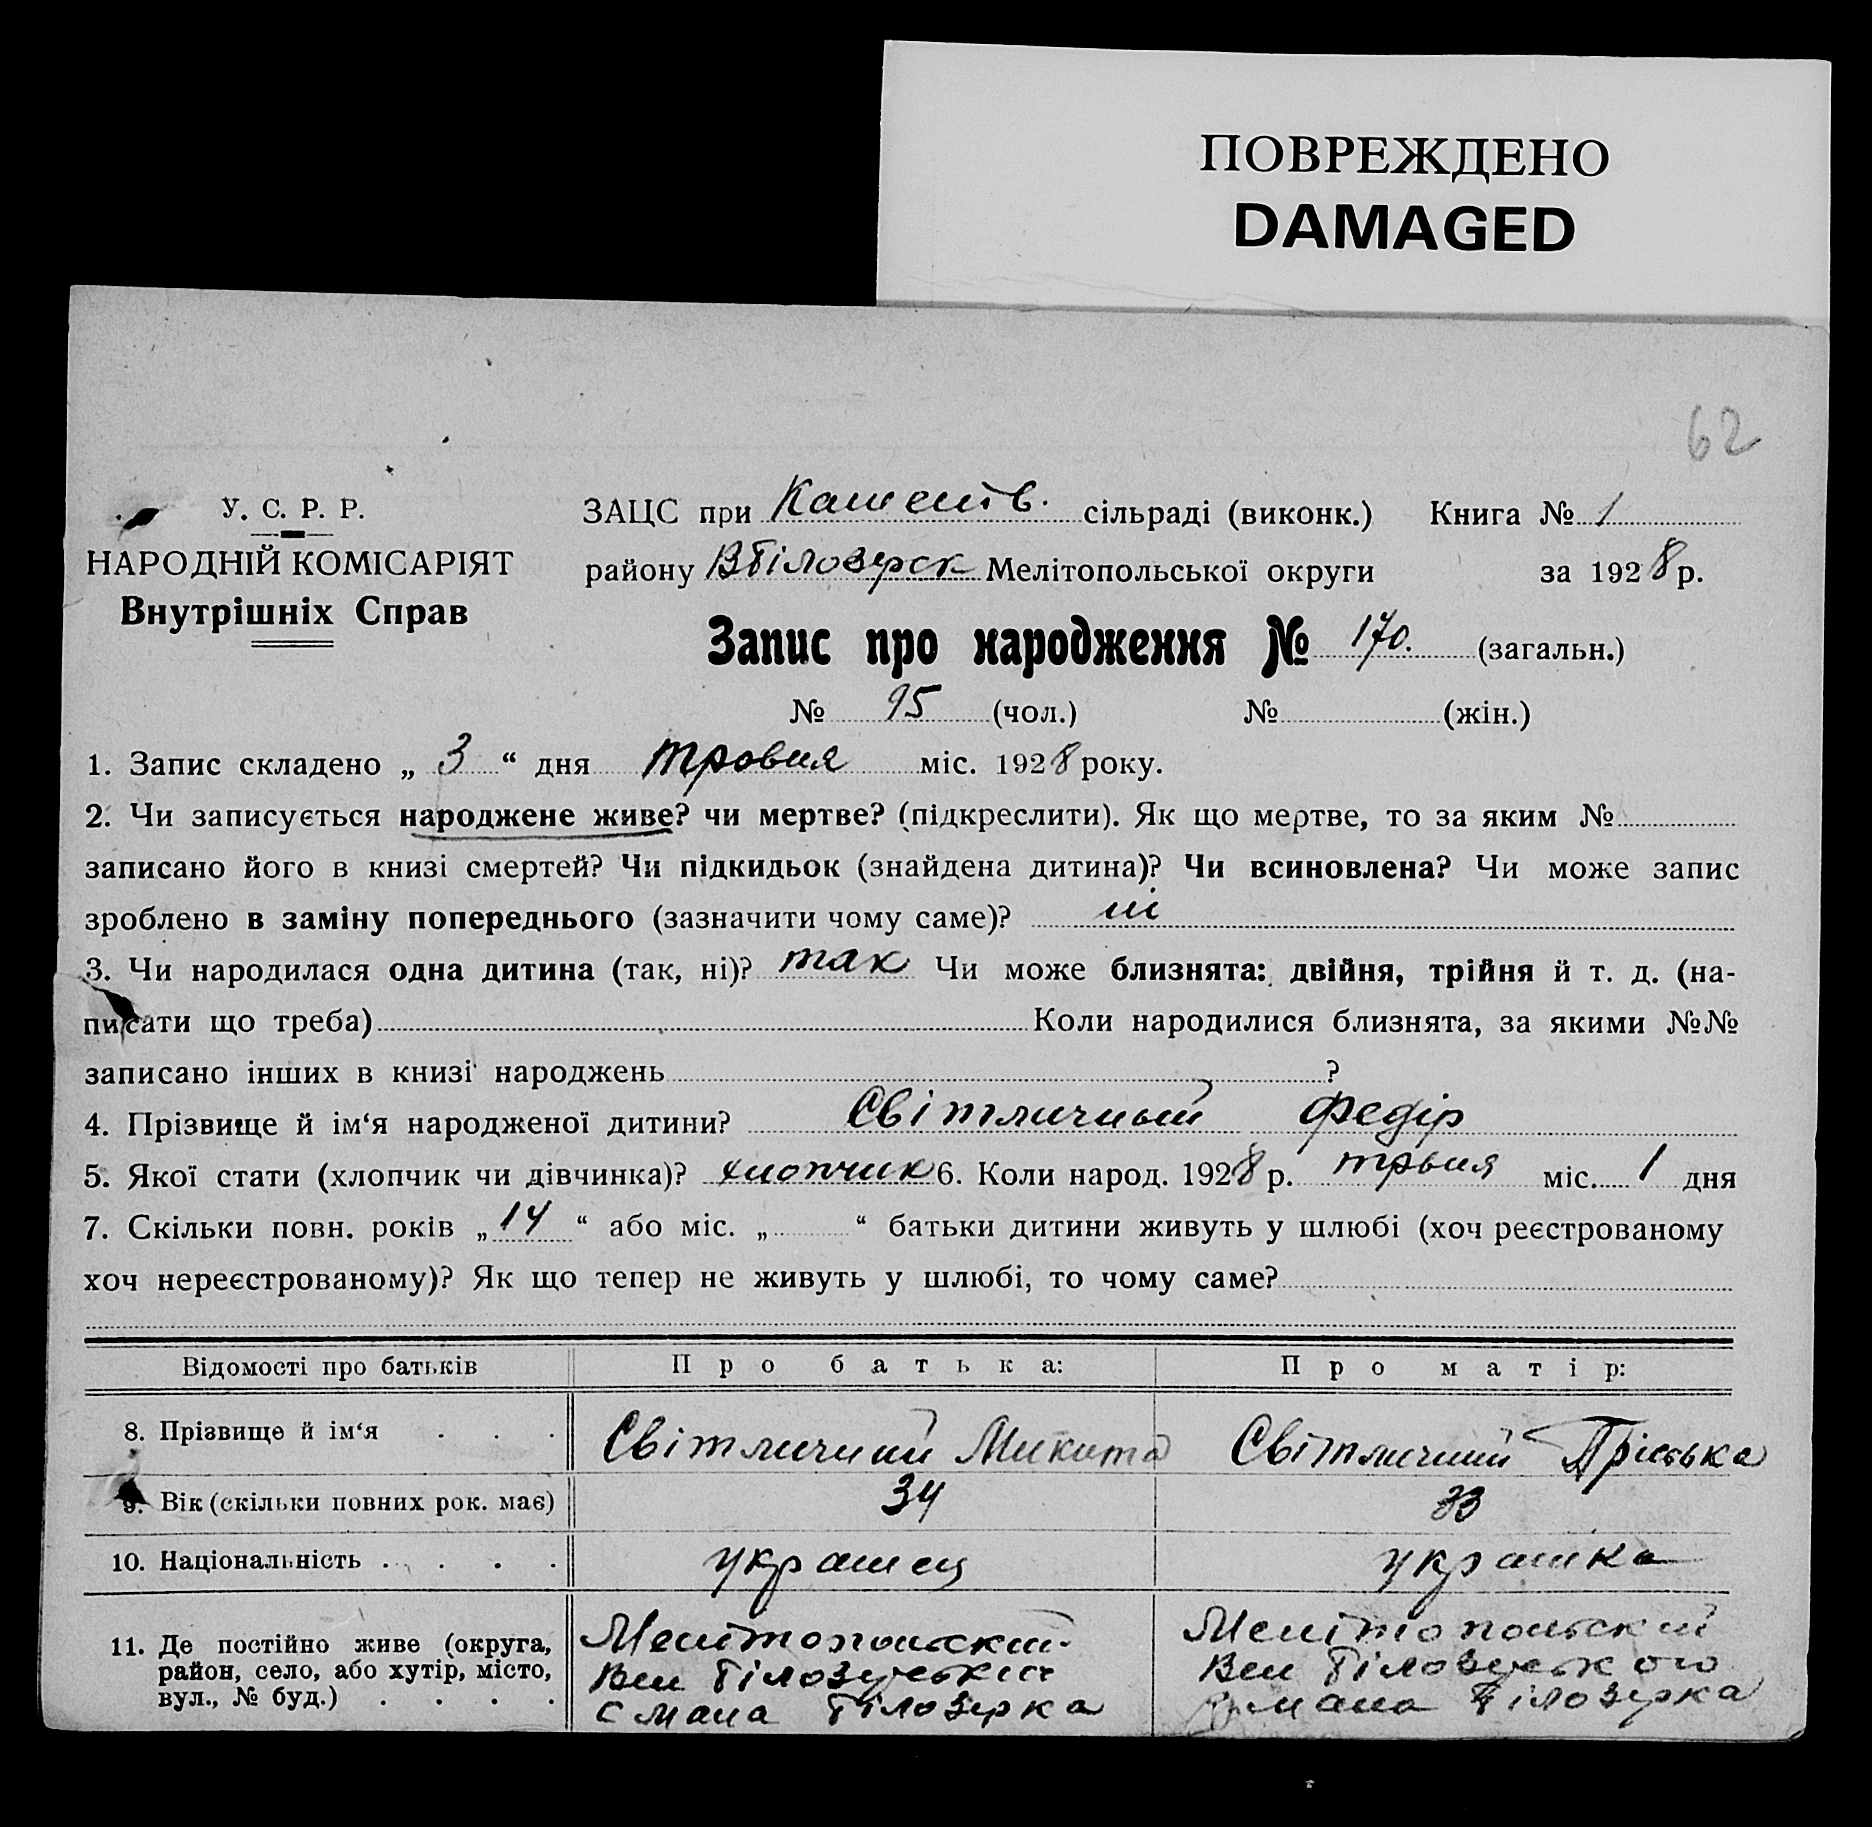 ПОВРЕЖДЕНО
DAMAGED
62
У. С. Р. Р.
НАРОДНІЙ КОМІСАРІЯТ
Внутрішніх Справ
ЗАЦС при сільраді (виконк.) Книга № 1
району ВБілозерск Мелітопольської округи за 1928 р.
Запис про народження № 170. (загальн.)
№ 95 (чол.) № (жін.)
1. Запис складено „ 3 “ дня травня міс. 1928 року.
2. Чи записується народжене живе? чи мертве? (підкреслити). Як що мертве, то за яким №
записано його в книзі смертей? Чи підкидьок (знайдена дитина)? Чи всиновлена? Чи може запис
зроблено в заміну попереднього (зазначити чому саме)? ні
3. Чи народилася одна дитина (так, ні)? так Чи може близнята: двійня, трійня й т. д. (на-
писати що треба) Коли народилися близнята, за якими №№
записано інших в книзі народжень ?
4. Прізвище й ім‘я народженої дитини? Світличный Федір
5. Якої стати (хлопчик чи дівчинка)? хлопчик 6. Коли народ. 1928 р. трвня міс. 1 дня
7. Скільки повн. років „ 14 “ або міс. „ “ батьки дитини живуть у шлюбі (хоч реєстрованому
хоч нереєстрованому)? Як що тепер не живуть у шлюбі, то чому саме?
Відомості про батьків Про батька: Про матір:
8. Прізвище й ім‘я . . . Світличний Микита Світличний Пріська
9. Вік (скільки повних рок. має) 34 33
10. Національність . . . . украінец украінка
11. Де постійно живе (округа, район, село, або хутір, місто, вул., № буд.) . . . .
Мелітопольский
Вел Білозерський
с мала Білозірка
Мелітопольский
Вел Білозерського
мала Білозірка